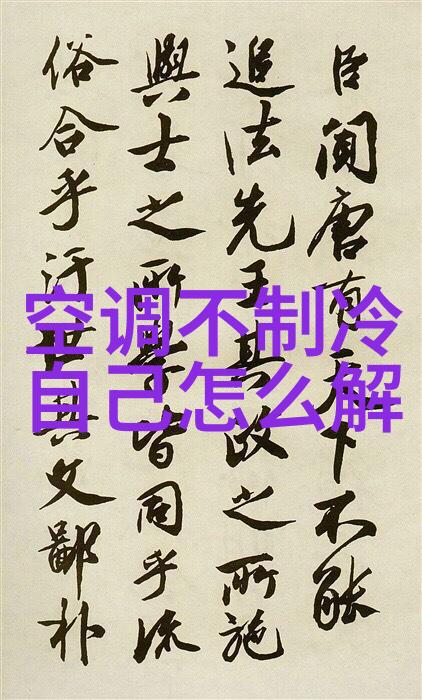 空调不制冷
自己怎么解
臣聞唐有天下不能
追法先王其政之所施
與士之所學皆同乎流
俗合乎汙世其文鄙朴